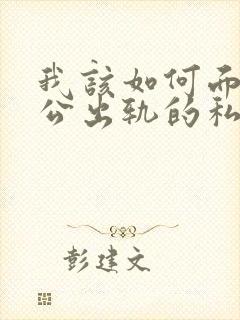 我該如何而
公出轨的私
彭建文